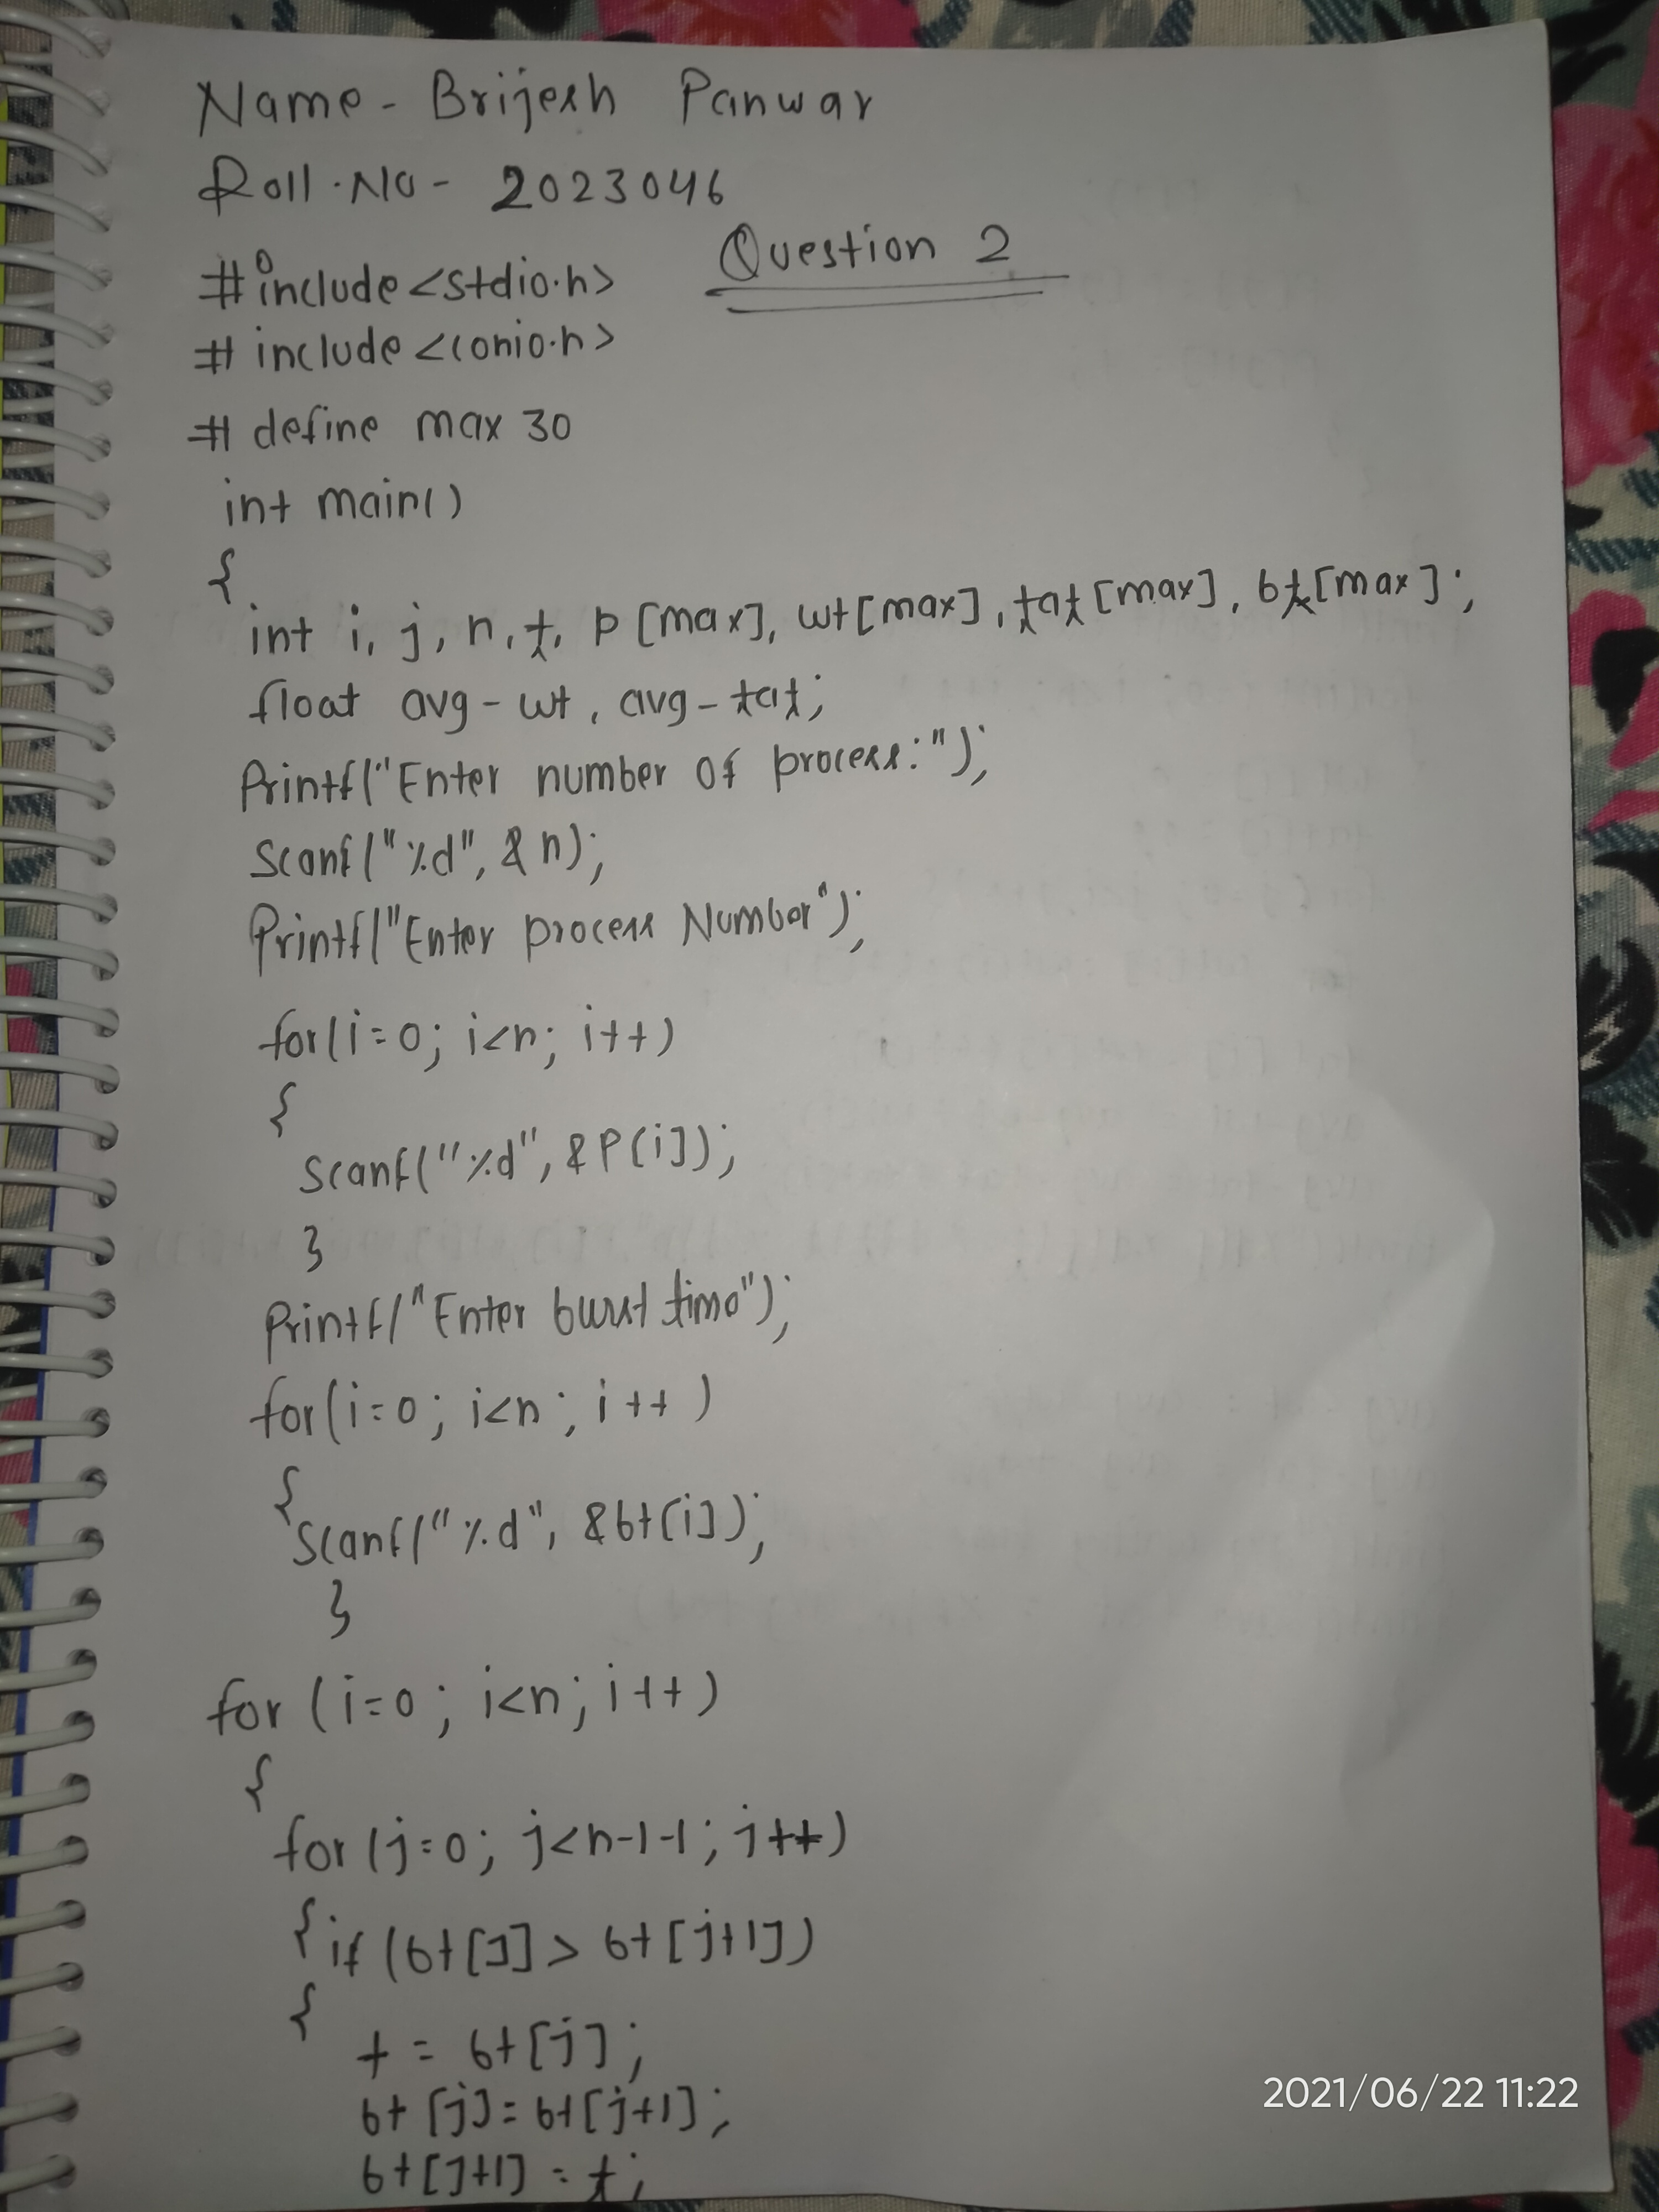 Name - Brijesh Panwar
Roll.No - 2023046
Question 2
#include <stdio.h>
# include <conio.h>
# define max 30
int main()
{
int i, j, n, t, p [max], wt [max], tat [max], bt [max];
float avg - wt, avg - tat;
Printf("Enter number of process:");
Scanf("%d", & n);
Printf("Enter process Number");
for(i=0; i<n; i++)
{
Scanf("%d", &P[i]);
}
Printf("Enter burst time");
for(i=0; i<n; i++)
{
Scanf("%d", &bt[i]);
}
for (i=0; i<n; i++)
{
for (j=0; j<n-1-1; j++)
{ if (bt[j] > bt [j+1])
{
t = bt[j];
bt [j] = bt [j+1];
bt [j+1] = t;
2021/06/22 11:22